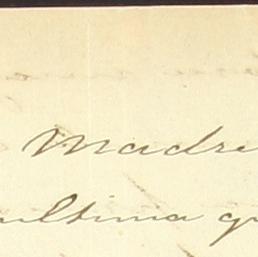 Madre
ultima qu